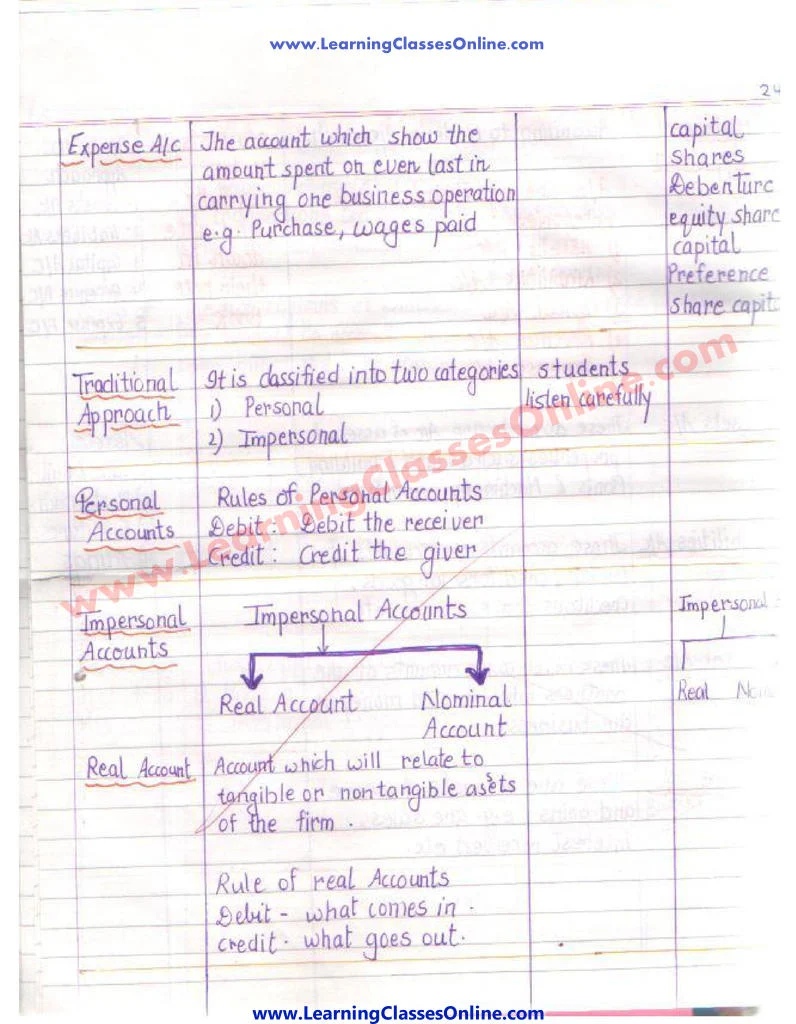 www.LearningClassesOnline.com
24
Expense A/c
The account which show the
amount spent on even last in
carrying one business operation
e.g. Purchase, wages paid
capital
shares
Debenture
equity share
capital
Preference
share capit
Traditional
Approach
It is classified into two categories
1) Personal
2) Impersonal
students
listen carefully
Personal
Accounts
Rules of Personal Accounts
Debit: Debit the receiver
Credit: Credit the giver
Impersonal
Accounts
Impersonal Accounts
Real Account
Nominal
Account
Impersonal
Real
Real Account
Account which will relate to
tangible or non tangible assets
of the firm.
Rule of real Accounts
Debit - what comes in.
credit - what goes out.
www.LearningClassesOnline.com
www.LearningClassesOnline.com